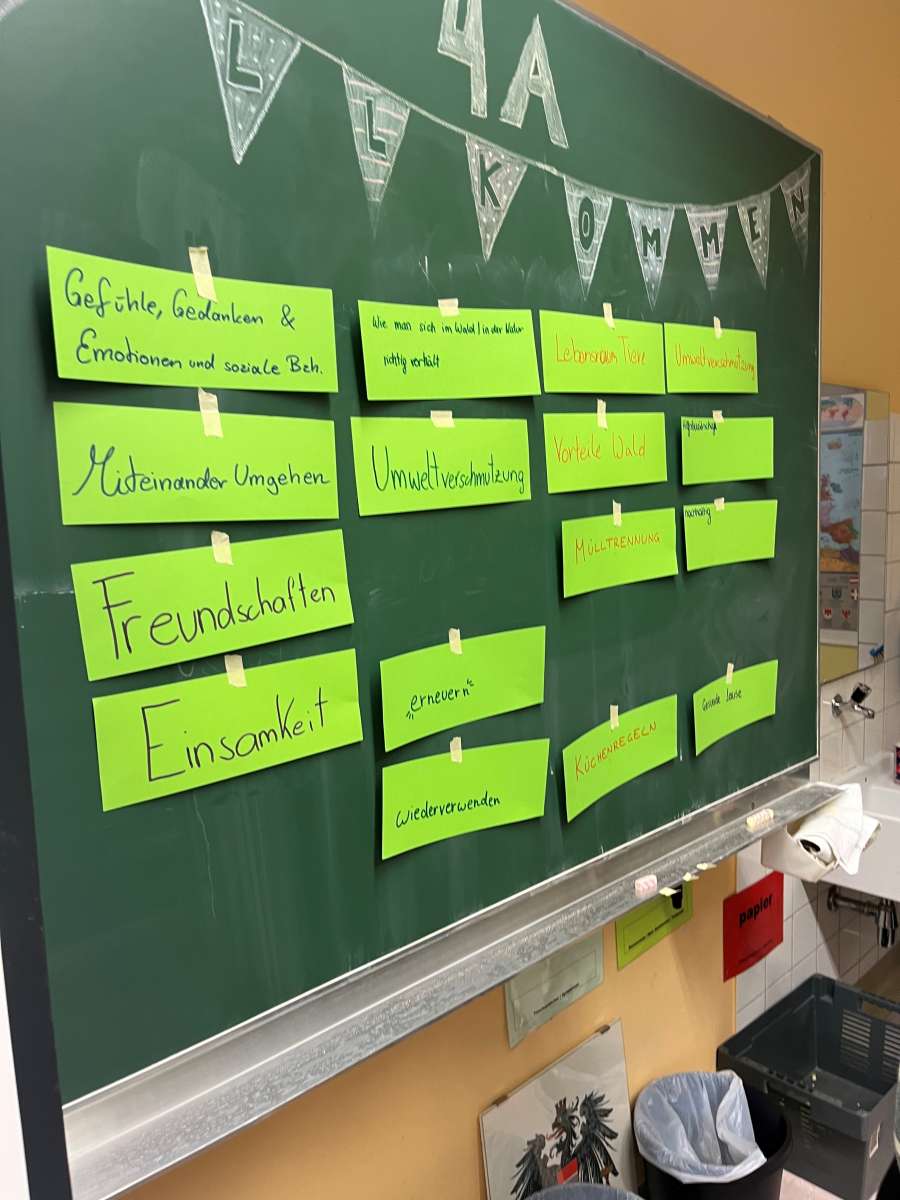 4A
LLKOMMEN
Gefühle, Gedanken &
Emotionen und soziale Bzh.
Miteinander Umgehen
Freundschaften
Einsamkeit
Wie man sich im Wald / in der Natur
richtig verhält
Umweltverschmutzung
"erneuern"
wiederverwenden
Lebensraum Tiere
Vorteile Wald
MÜLLTRENNUNG
KÜCHENREGELN
Umweltverschmutzung
nachhaltig
Gesunde Jause
papier